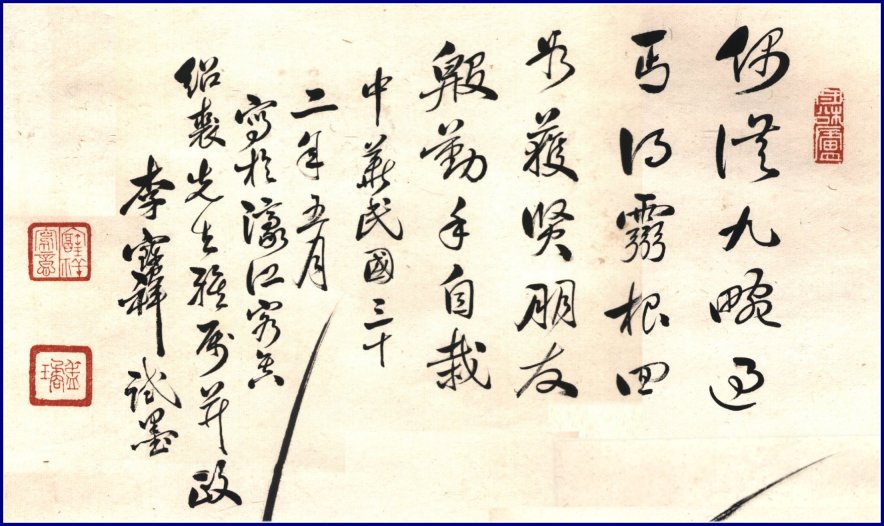 偶從九畹過
丐得靈根囬
如獲賢朋友
殷勤手自栽
中華民國三十
二年五月
寫於濠江客舍
紹裘先生雅屬并政
李寶祥試墨